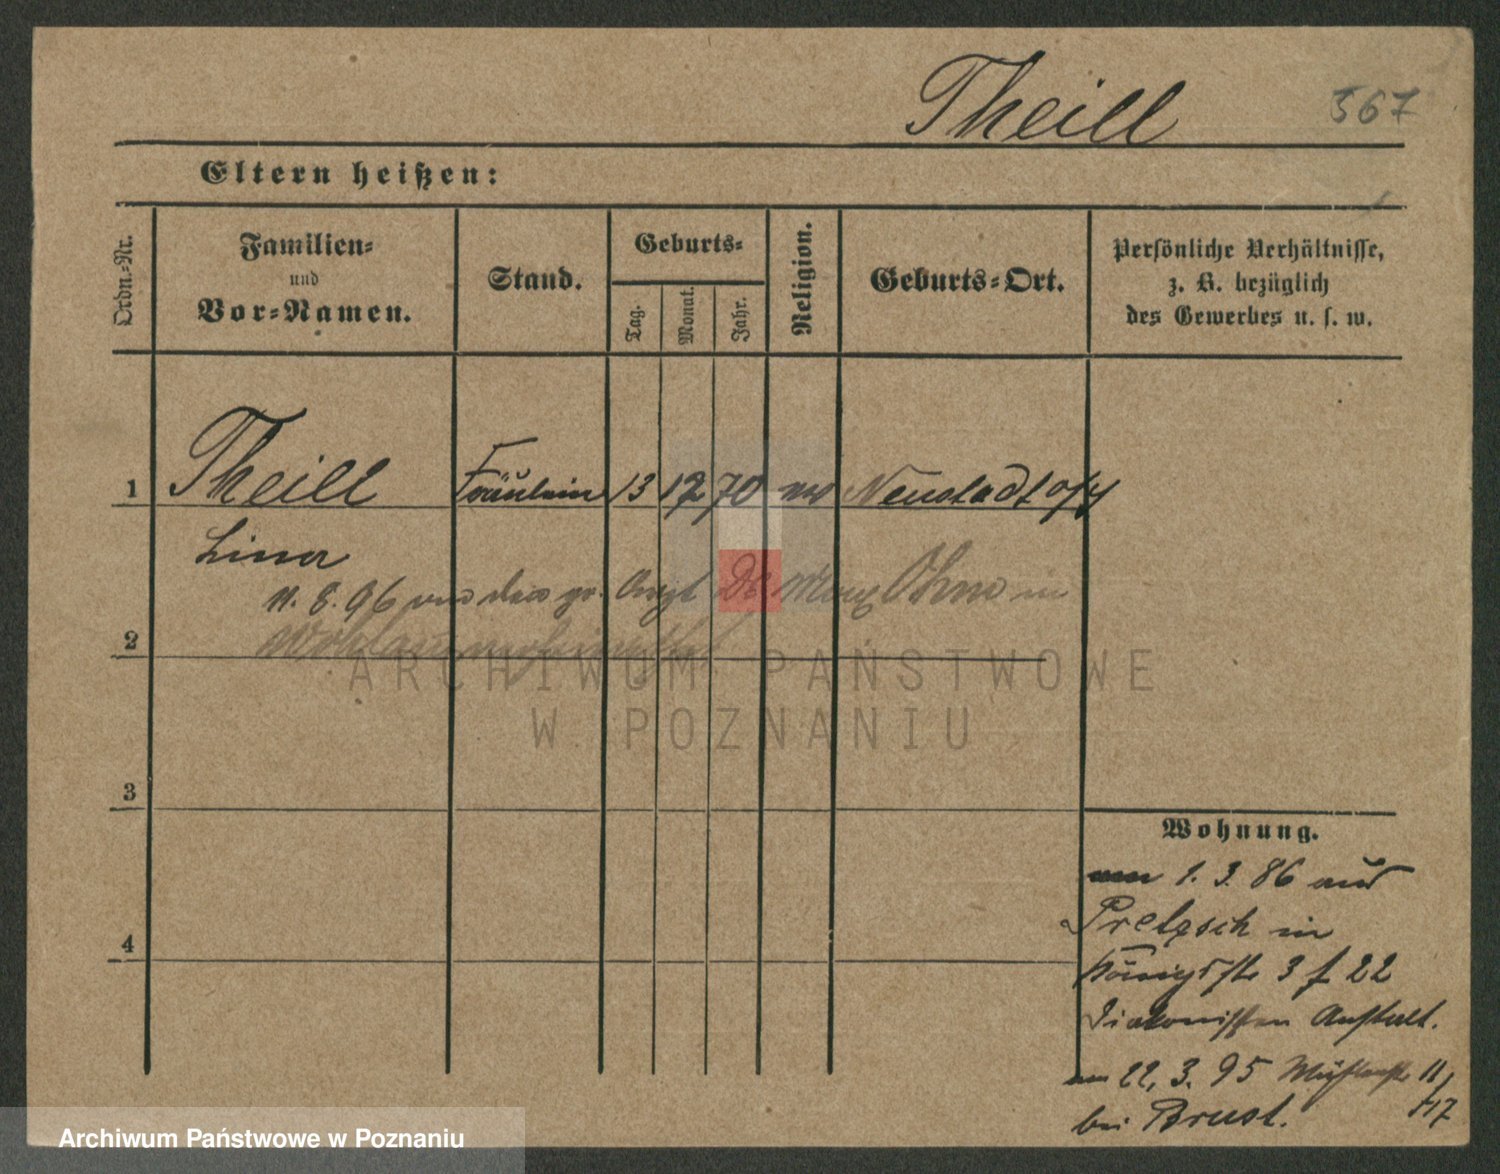 Theill
567
Eltern heißen:
Ordn.-Nr.
Familien-
und
Vor-Namen.
Stand.
Geburts-
Tag.
Monat.
Jahr.
Religion.
Geburts-Ort.
Persönliche Verhältnisse,
z. B. bezüglich
des Gewerbes u. s. w.
1 Theill Fräulein 13 12 70 Neustadt o/S
Lina
11. 8. 96 Arzt Dr Max in
2
ARCHIWUM PAŃSTWOWE
W POZNANIU
3
Wohnung.
1. 3. 86 aus
Pretzsch in
4
Königstr 3 f 22
Diakonissen Anstalt.
am 22. 3. 95 11/17
bei Brust.
Archiwum Państwowe w Poznaniu